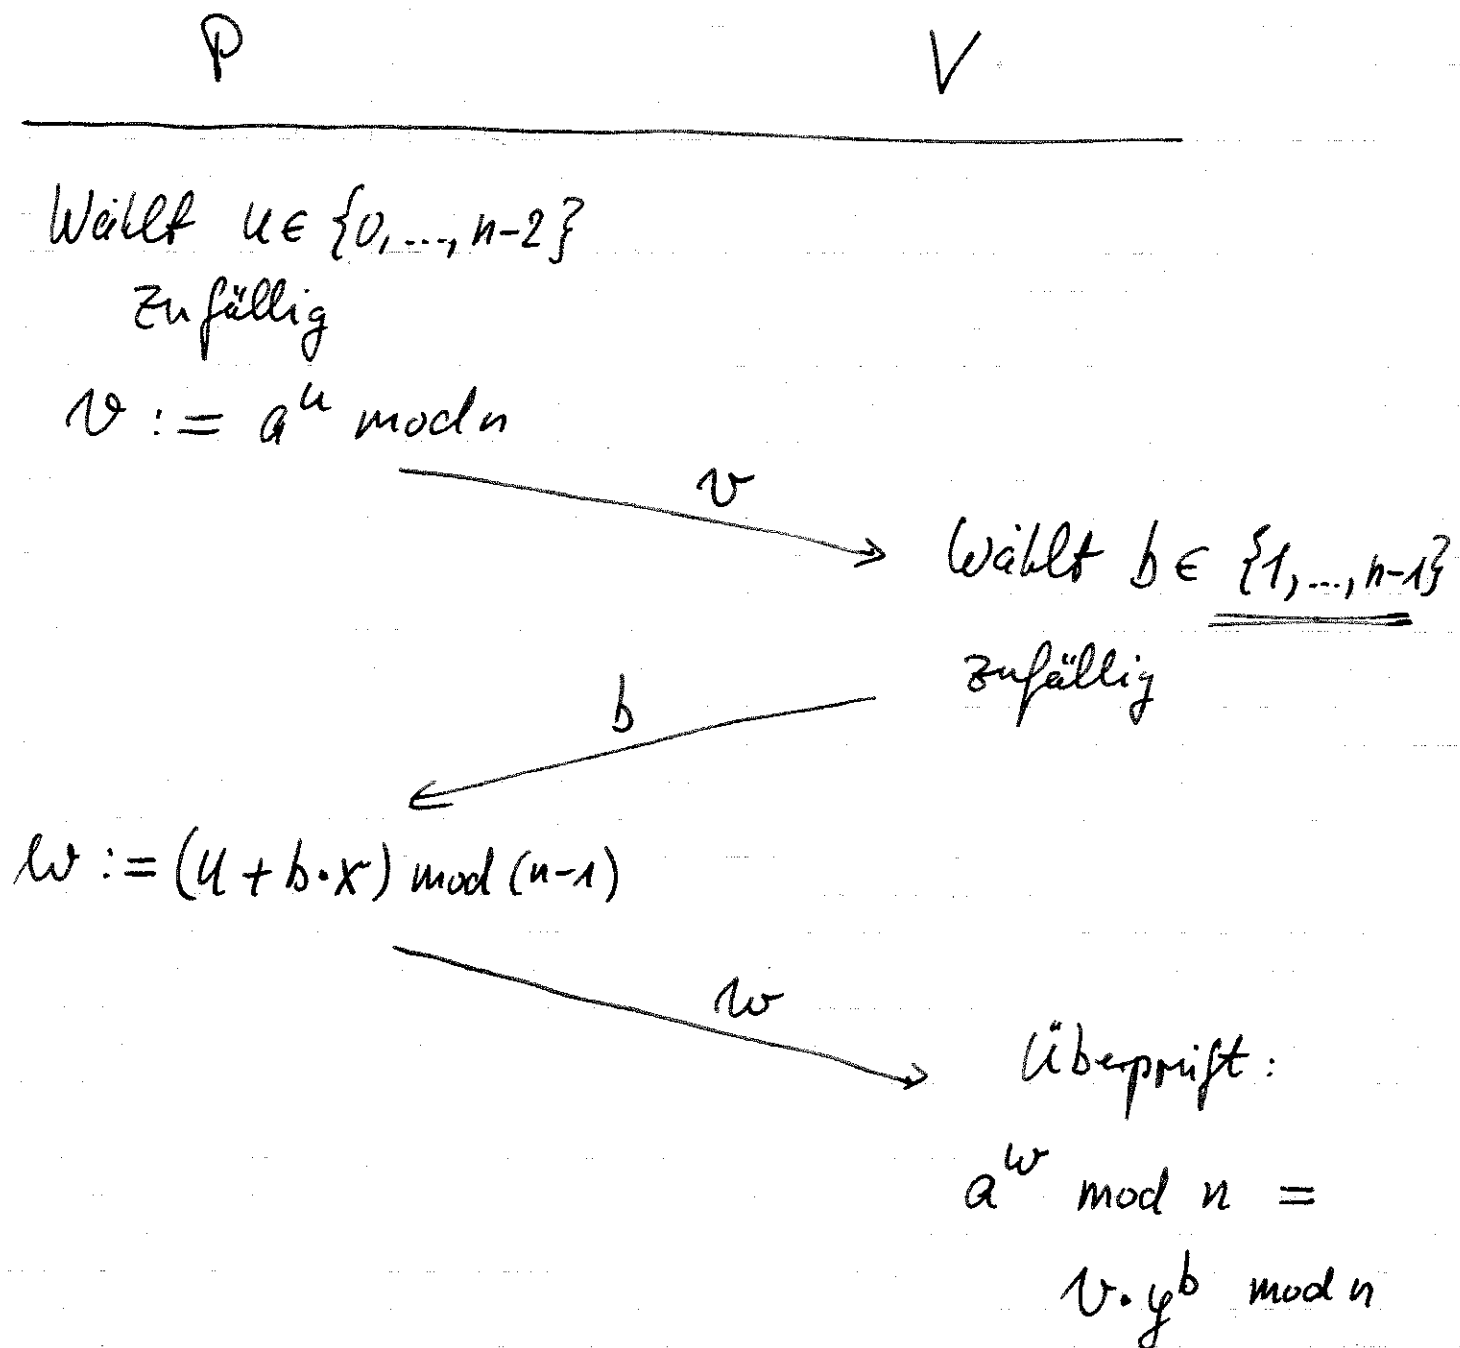 P V
Wählt u ∈ {0, ..., n-2}
zufällig
v := a^u mod n
v
Wählt b ∈ {1, ..., n-1}
zufällig
b
w := (u + b·x) mod (n-1)
w
Überprüft:
a^w mod n =
v·y^b mod n